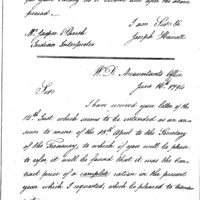 period.
I am Sir &c
Mr Jasper Parrish
Joseph Howell
Indian Interpreter
W. D. Accountants Office
June 16th 1794
Sir
I have received your letter of the
14th Inst. which seems to be intended as an an-
swer to mine of the 18th April to the Secretary
of the Treasury, to which if you will be pleased
to refer, it will be found that it was the con-
tract price of a complete ration in the present
year which I requested, which be pleased to